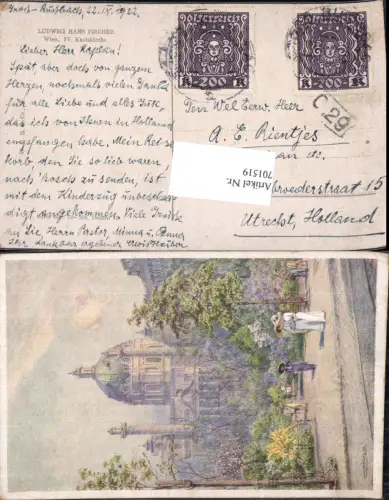 Gross-Russbach, 22.IX.1922.
LUDWIG HANS FISCHER
Wien, IV. Karlskirche.
Lieber Herr Kaplan!
Spät, aber doch von ganzem
Herzen nochmals vielen Dank
für alle Liebe und alles Gute,
das ich von Ihnen in Holland
empfangen habe. Mein Reise-
korb, den Sie so lieb waren
nach' zu senden, ist
mit dem Kinderzug unbeschä-
digt angekommen. Viele Grüsse
an die Herrn Pastor, Minna u. Anna
Ihr dankbar ergebener
ÖSTERREICH
K 200 K
ÖSTERREICH
K 200 K
C 29
Wel Eerw. Heer
A. E. Rientjes
etc.
Artikel Nr.
701519
broederstraat 15
Utrecht, Holland